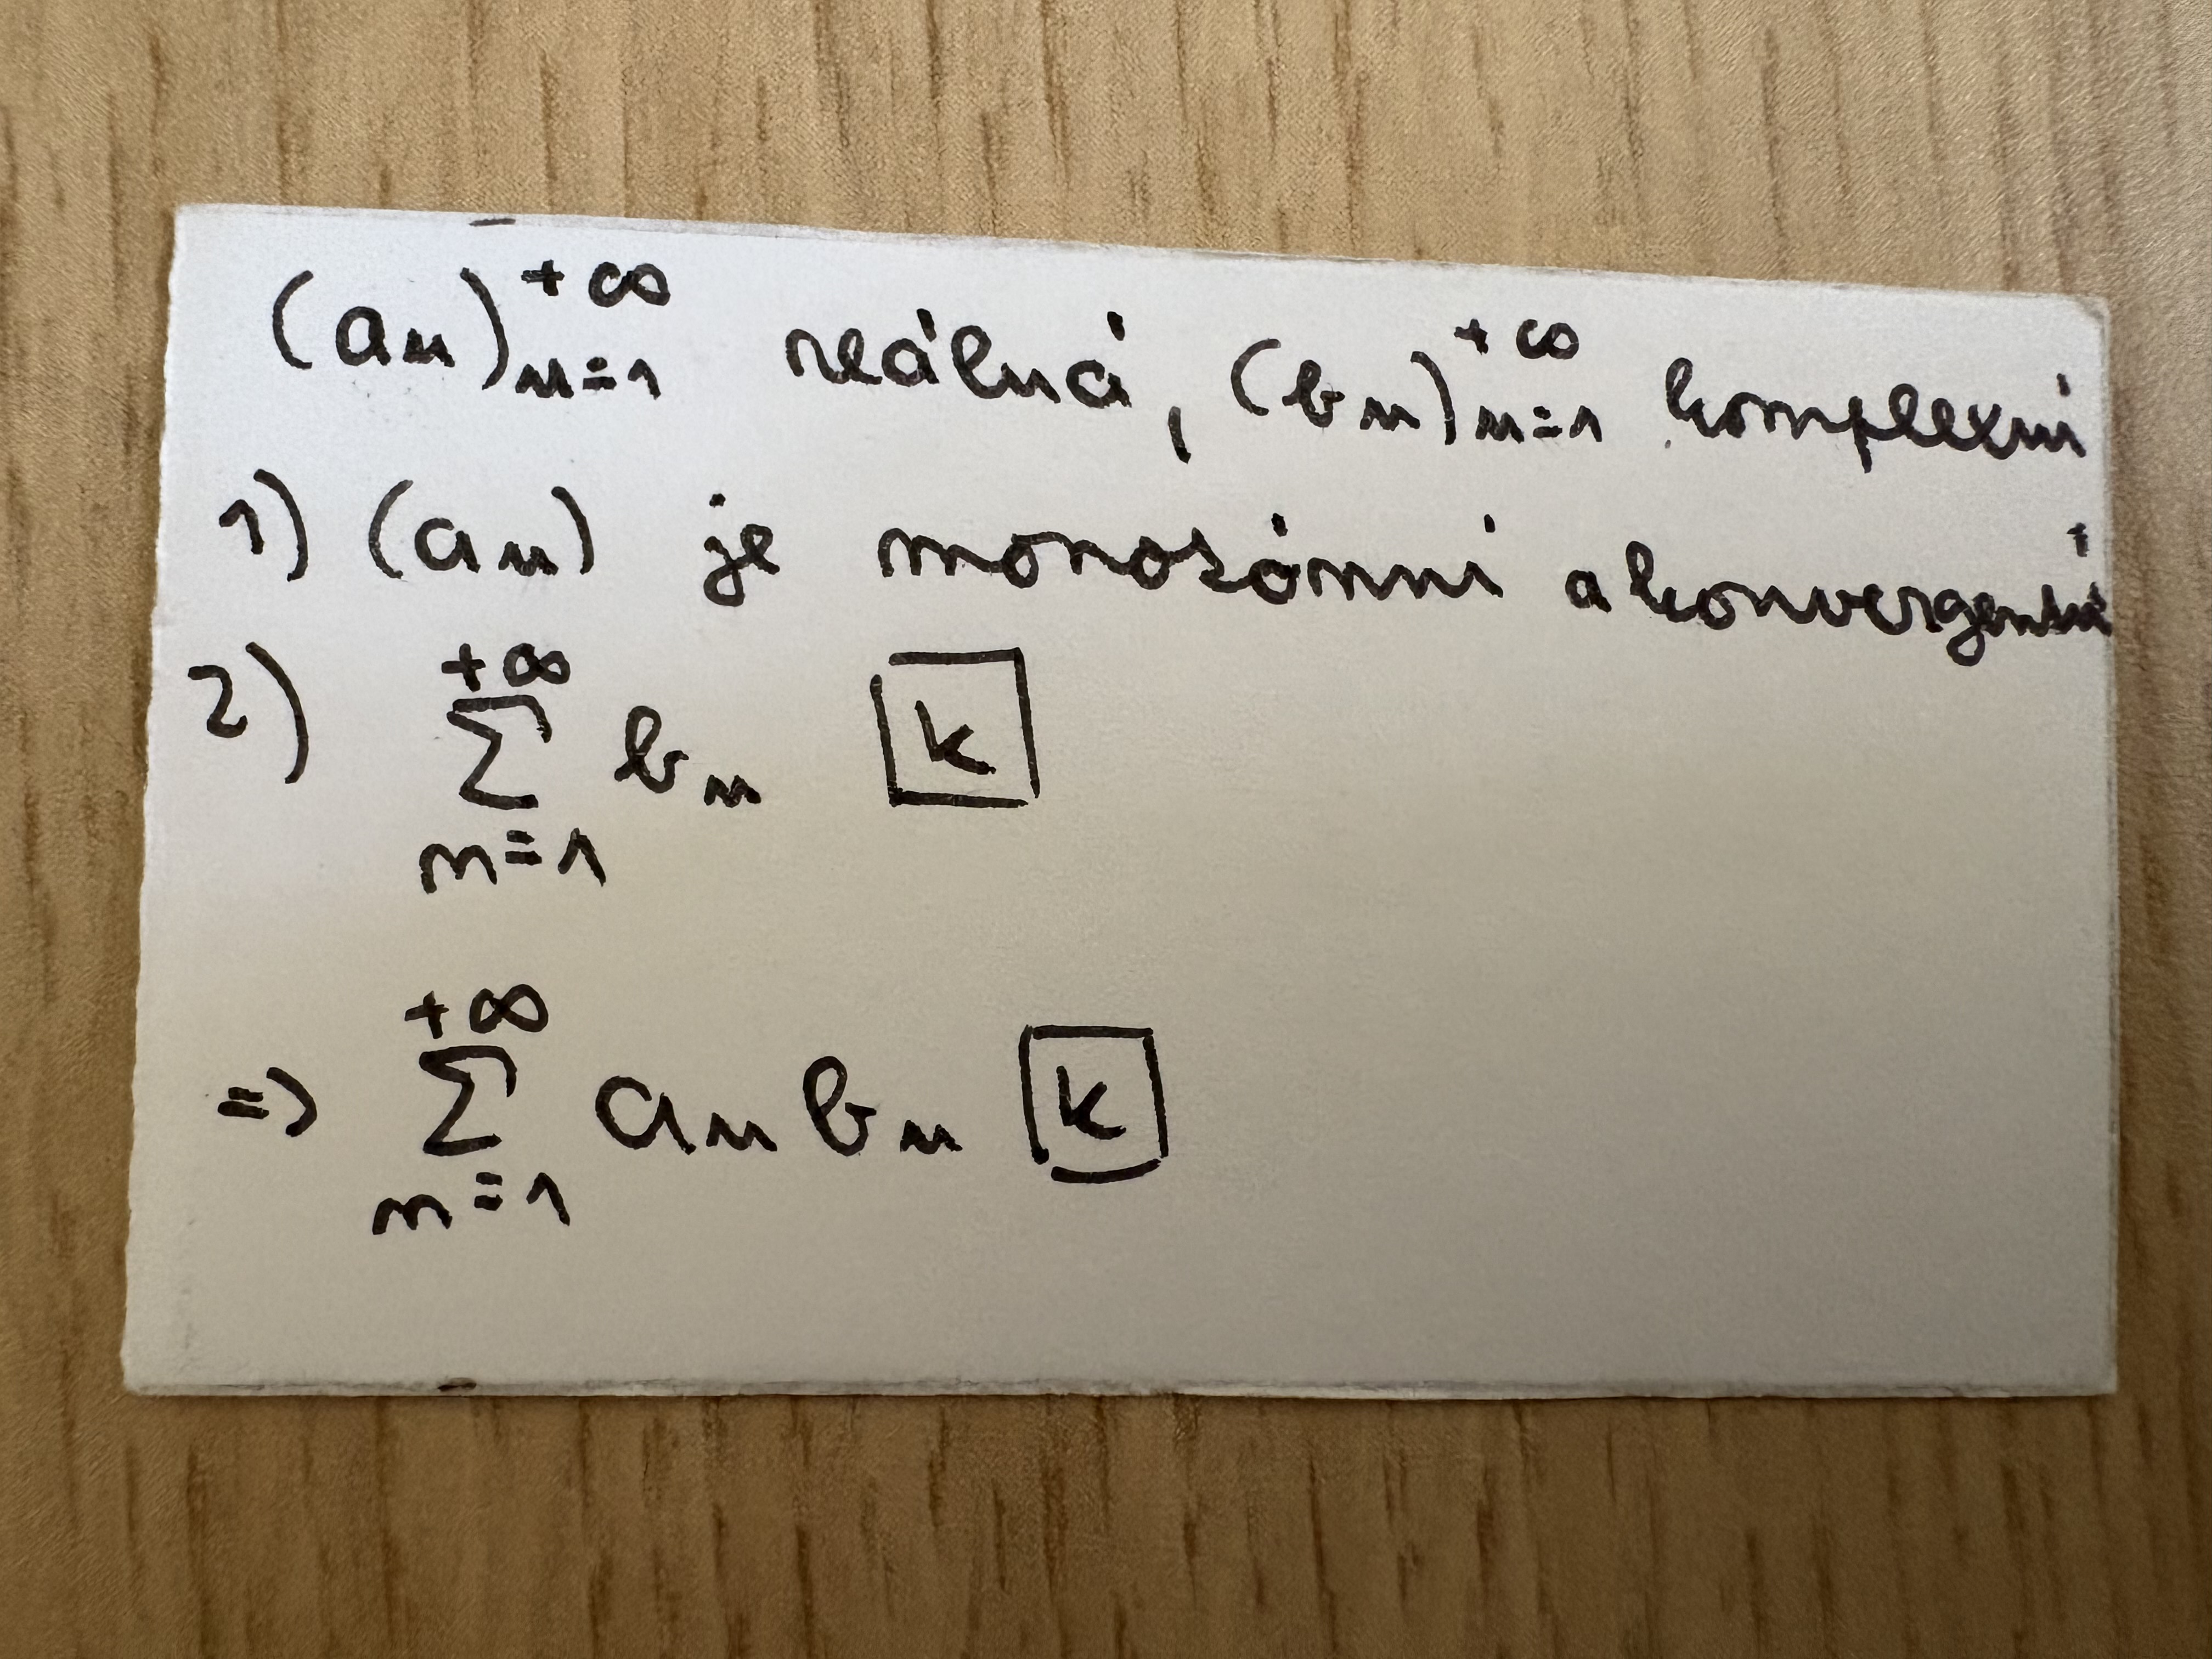 (aₙ)ₙ₌₁^{+∞} reálná, (bₙ)ₙ₌₁^{+∞} komplexní
1) (aₙ) je monotónní a konvergentní
2) ∑_{n=1}^{+∞} bₙ [K]
=> ∑_{n=1}^{+∞} aₙ bₙ [K]